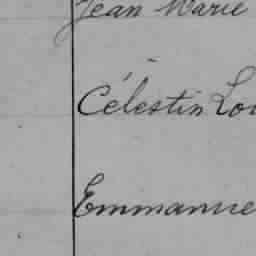 Jean Marie
Célestin Lou
Emmanue